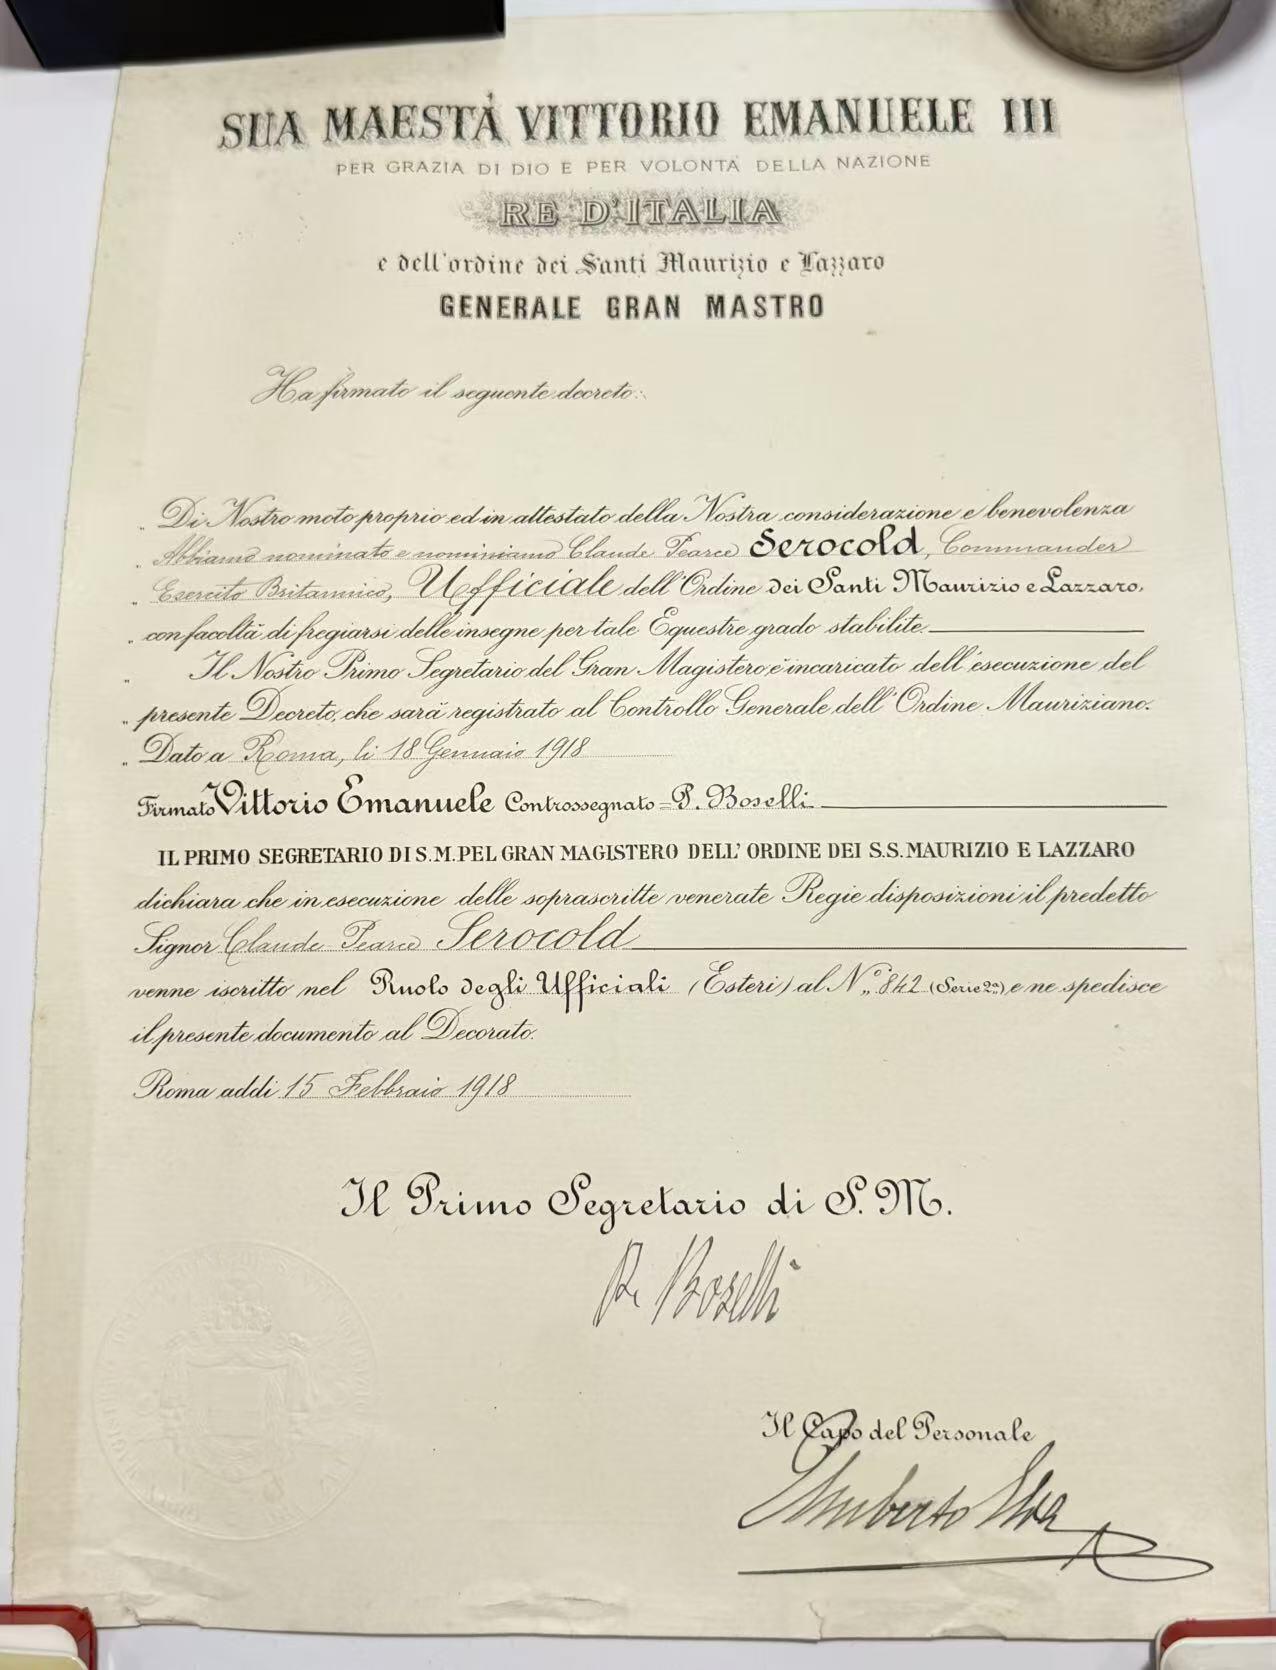 SUA MAESTÀ VITTORIO EMANUELE III
PER GRAZIA DI DIO E PER VOLONTÀ DELLA NAZIONE
RE D'ITALIA
e dell'ordine dei Santi Maurizio e Lazzaro
GENERALE GRAN MASTRO
Ha firmato il seguente decreto:
„ Di Nostro moto proprio ed in attestato della Nostra considerazione e benevolenza
„ Abbiamo nominato e nominiamo Claude Pearce Serocold, Commander
„ Esercito Britannico, Ufficiale dell'Ordine dei Santi Maurizio e Lazzaro,
„ con facoltà di fregiarsi delle insegne per tale Equestre grado stabilite.
„ Il Nostro Primo Segretario del Gran Magistero è incaricato dell'esecuzione del
„ presente Decreto, che sarà registrato al Controllo Generale dell'Ordine Mauriziano.
„ Dato a Roma, li 18 Gennaio 1918
Firmato Vittorio Emanuele Controssegnato = P. Boselli
IL PRIMO SEGRETARIO DI S.M. PEL GRAN MAGISTERO DELL'ORDINE DEI S.S. MAURIZIO E LAZZARO
dichiara che in esecuzione delle soprascritte venerate Regie disposizioni il predetto
Signor Claude Pearce Serocold
venne iscritto nel Ruolo degli Ufficiali (Esteri) al N.° 842 (Serie 2ª) e ne spedisce
il presente documento al Decorato.
Roma addi 15 Febbraio 1918
Il Primo Segretario di S. M.
P. Boselli
Il Capo del Personale
Umberto